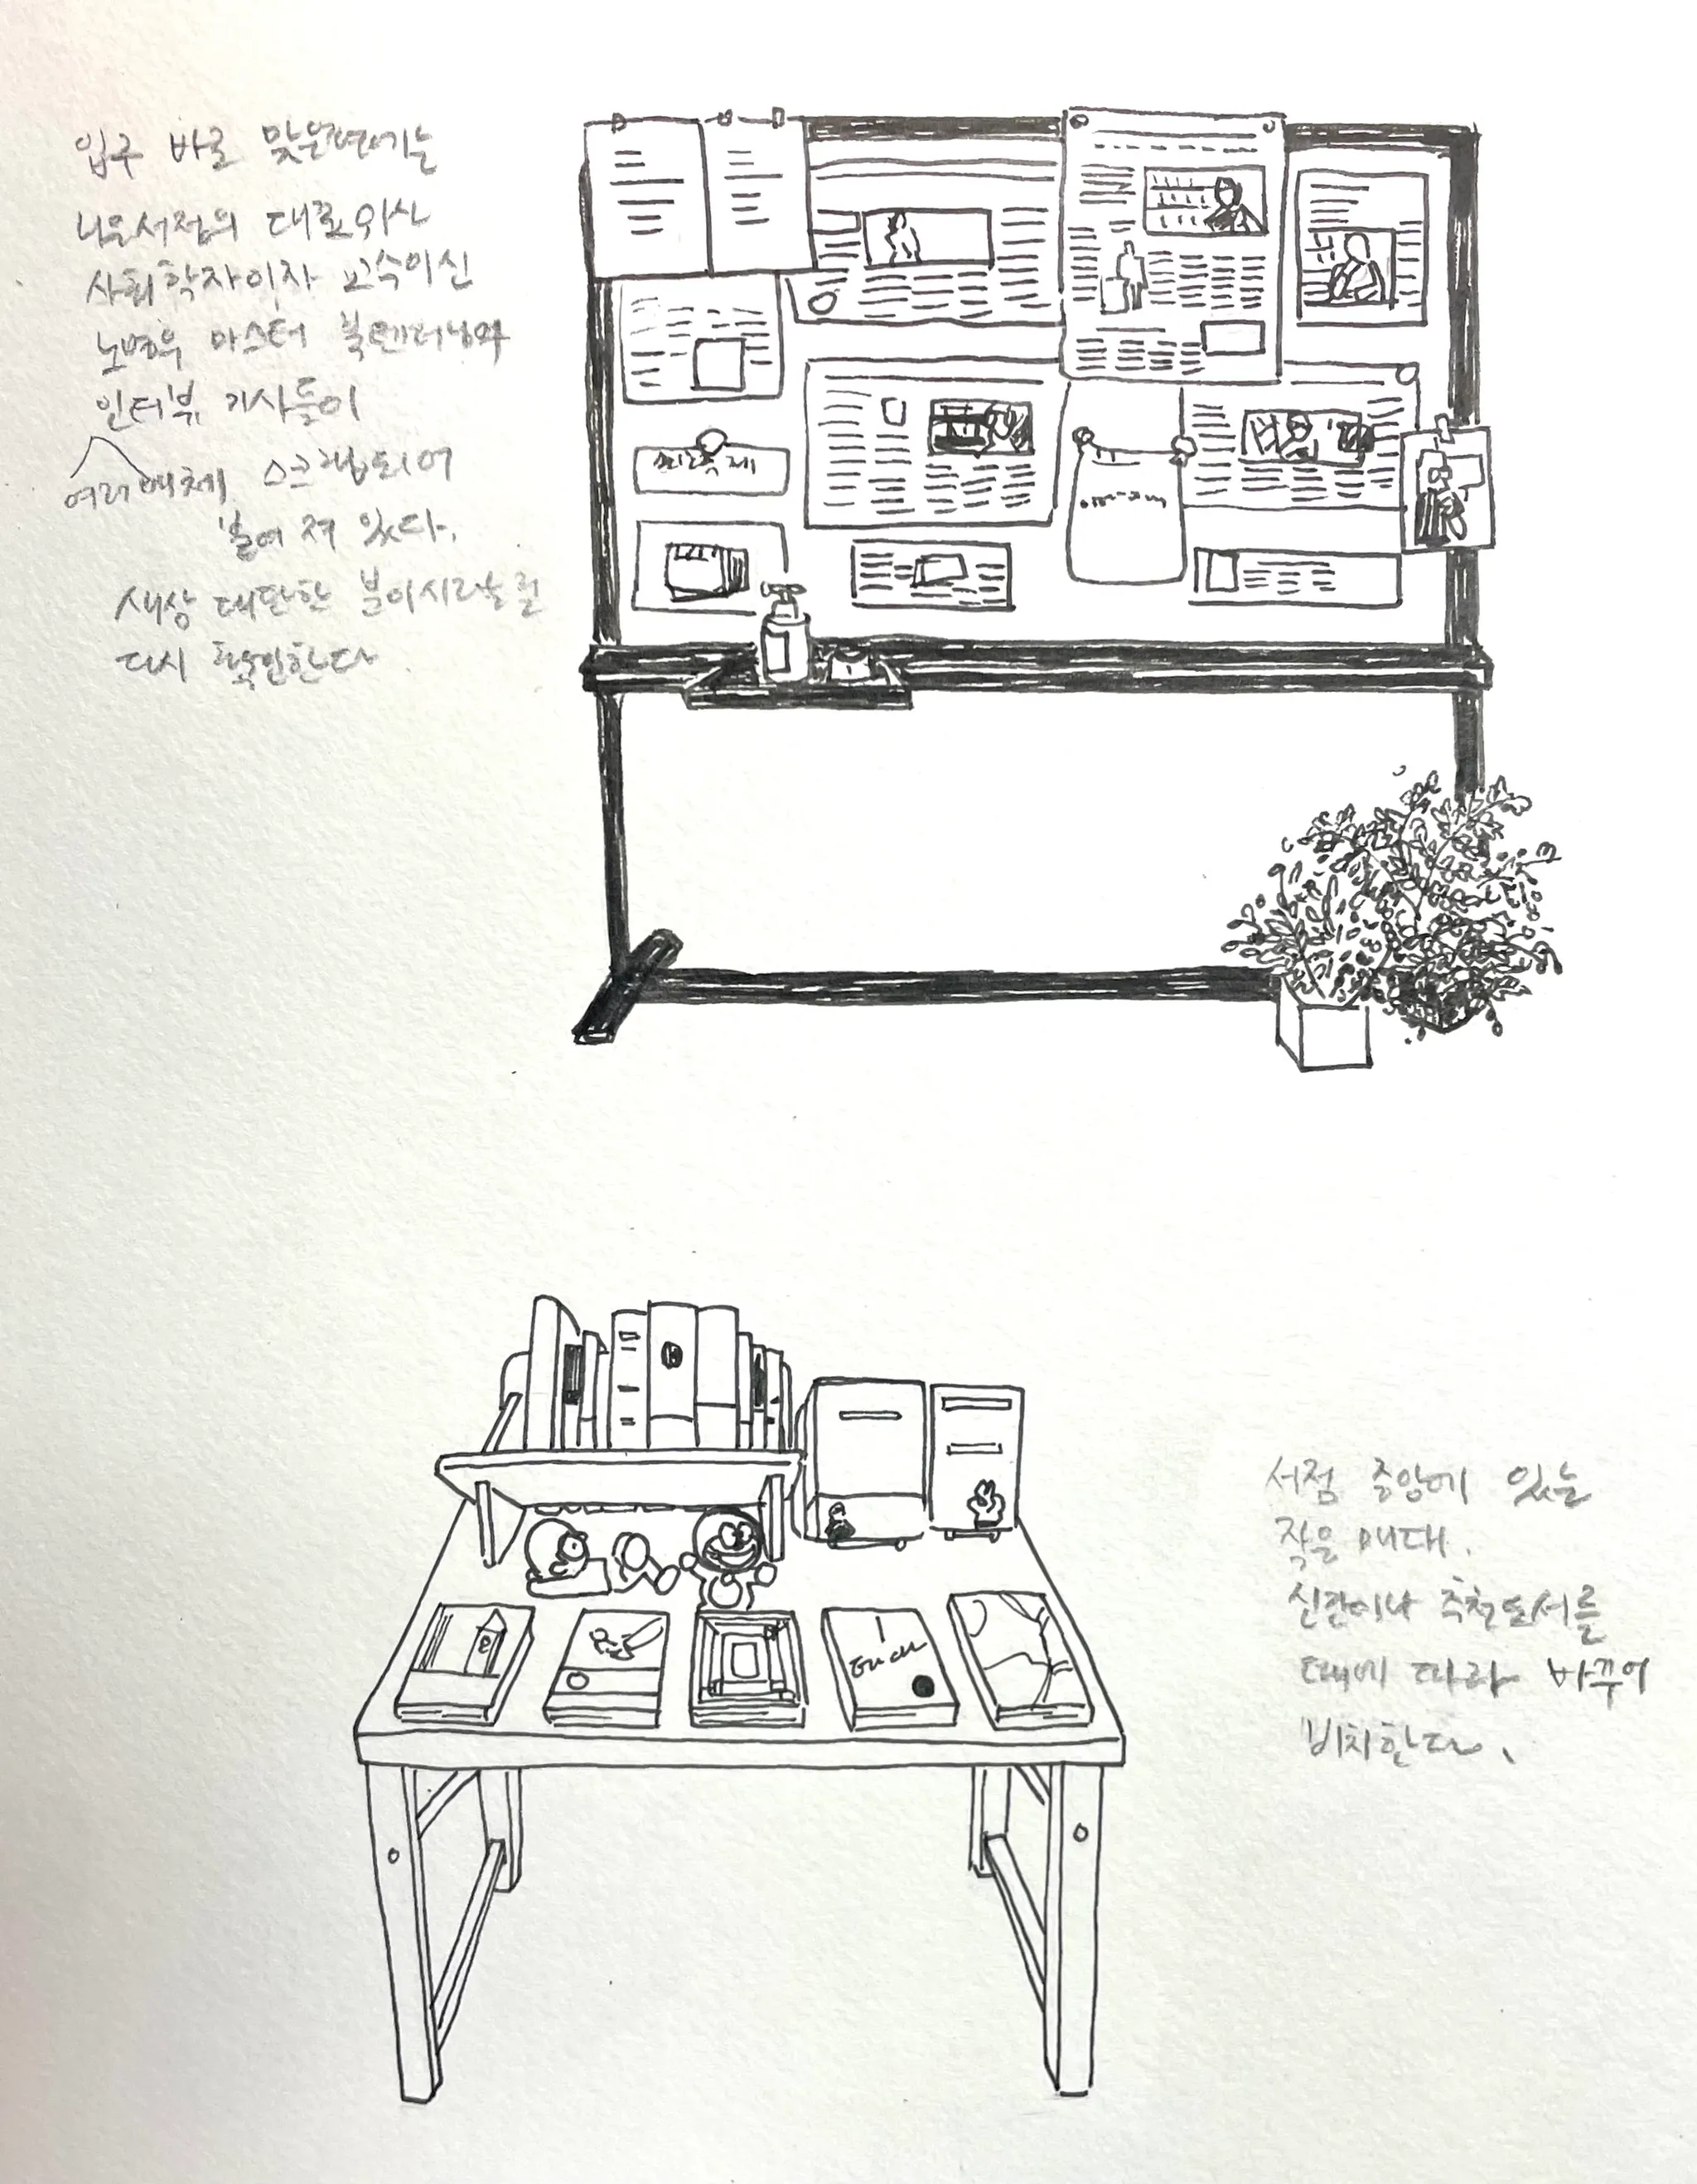 입구 바로 맞은편에는
니은서점의 대표이사
사회학자이자 교수이신
노명우 마스터 북텐더님의
인터뷰 기사들이
여러 매체
스크랩되어
붙여 져 있다.
새삼 대단한 분이시라는 걸
다시 확인한다.
서점 중앙에 있는
작은 매대.
신간이나 추천도서를
때에 따라 바꾸어
비치한다.